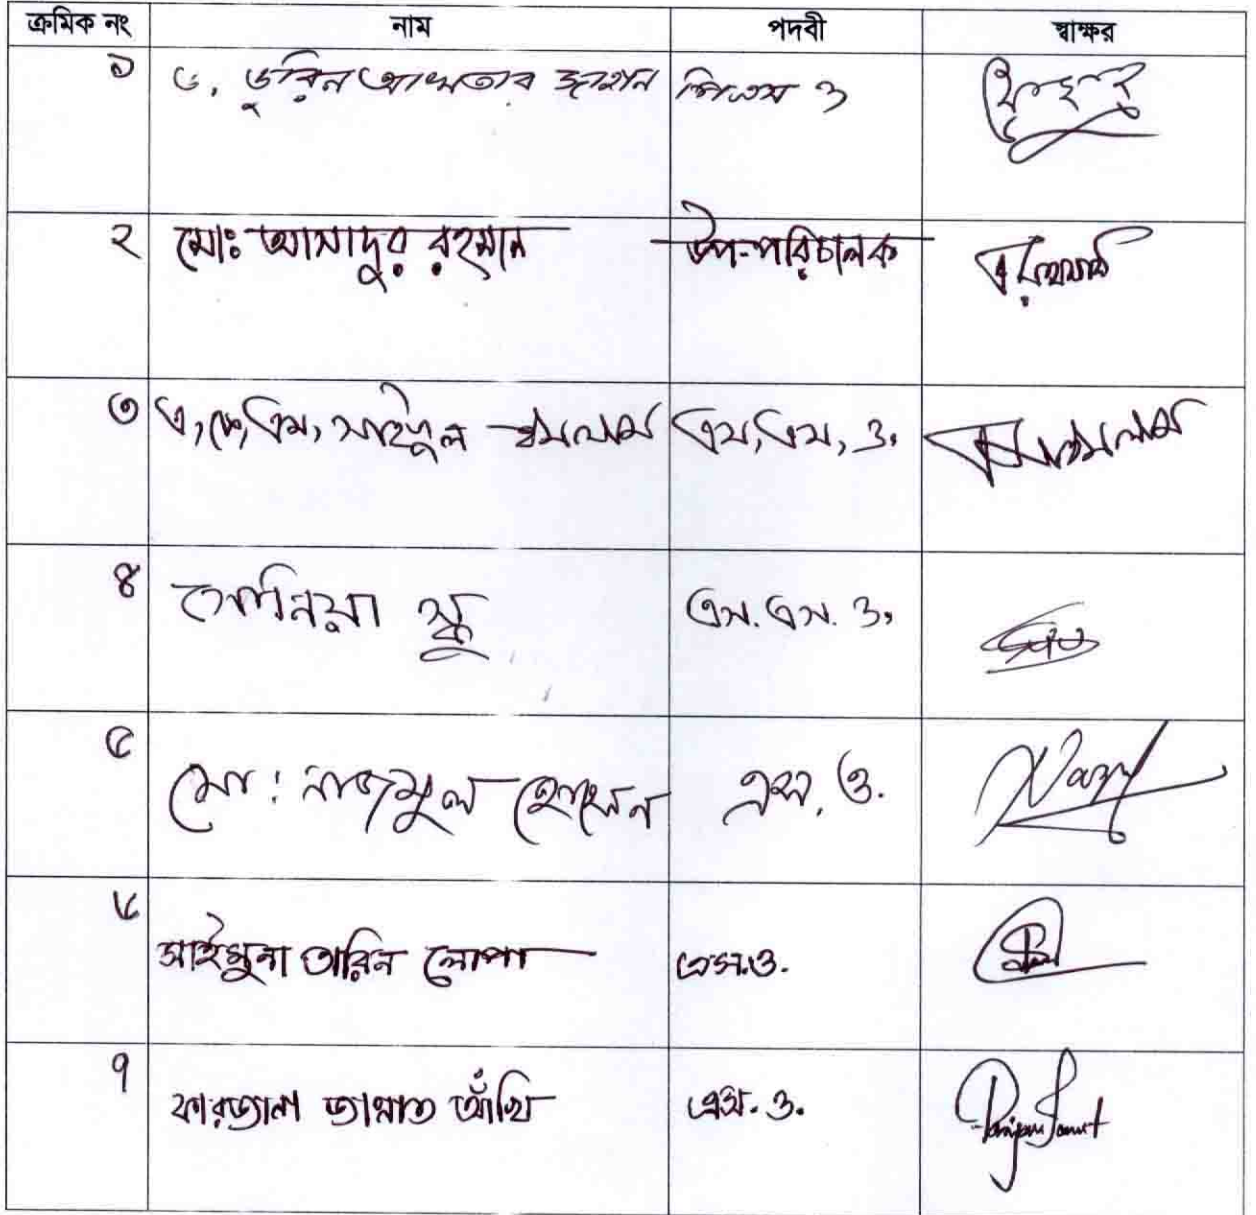 ক্রমিক নং নাম পদবী স্বাক্ষর
১ ড. ডুরিন আখতার জাহান পিএস ও
২ মোঃ আসাদুর রহমান উপ-পরিচালক
৩ এ, কে, এম, সাইফুল ইসলাম এস, এস, ও.
৪ তানিয়া এস. এস. ও.
৫ মো: নাজমুল হোসেন এস. ও.
৬ সাইমুনা তারিন লোপা এস.ও.
৭ ফারজানা জান্নাত আঁখি এস. ও.